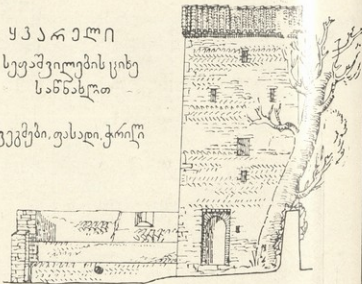 ყვარელი
სეფაშვილების ციხე
საწნახლით
გეგმები, ფასადი, ჭრილი